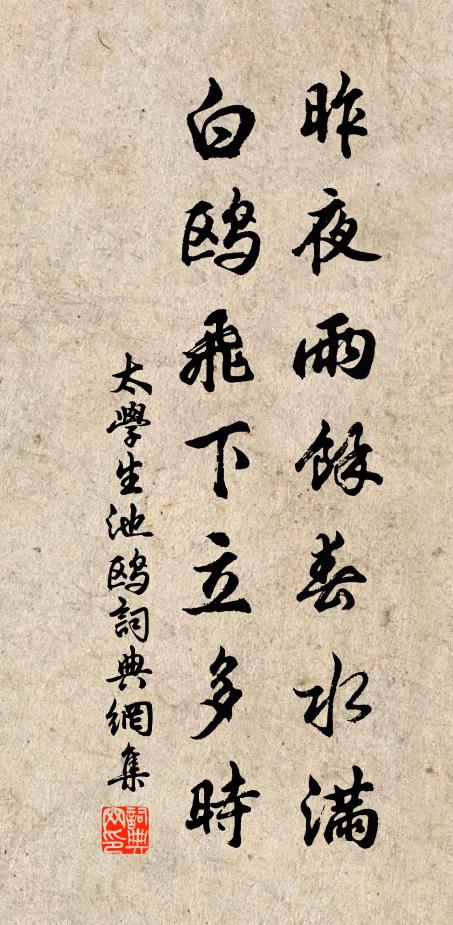 昨夜雨餘春水滿
白鸥飛下立多時
太學生池鸥詞典網集
詞典網印